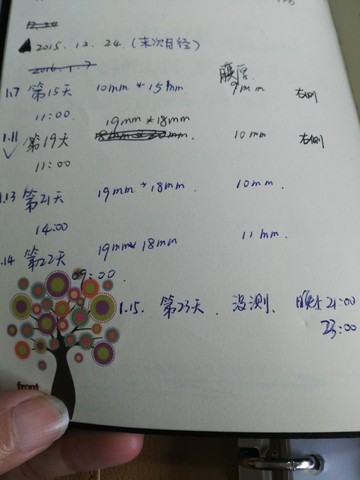 ▲2015.12.24(末次月经)
2016.1.7
膜厚
1.7 第15天 10mm*15mm 9mm 右侧
11:00
19mm*18mm
1.11 第19天 10mm 右侧
11:00
1.13 第21天 19mm*18mm 10mm.
14:00
1.14 第22天 19mm*18mm 11mm.
09:00
1.15. 第23天. 没测、 晚上21:00
23:00
front